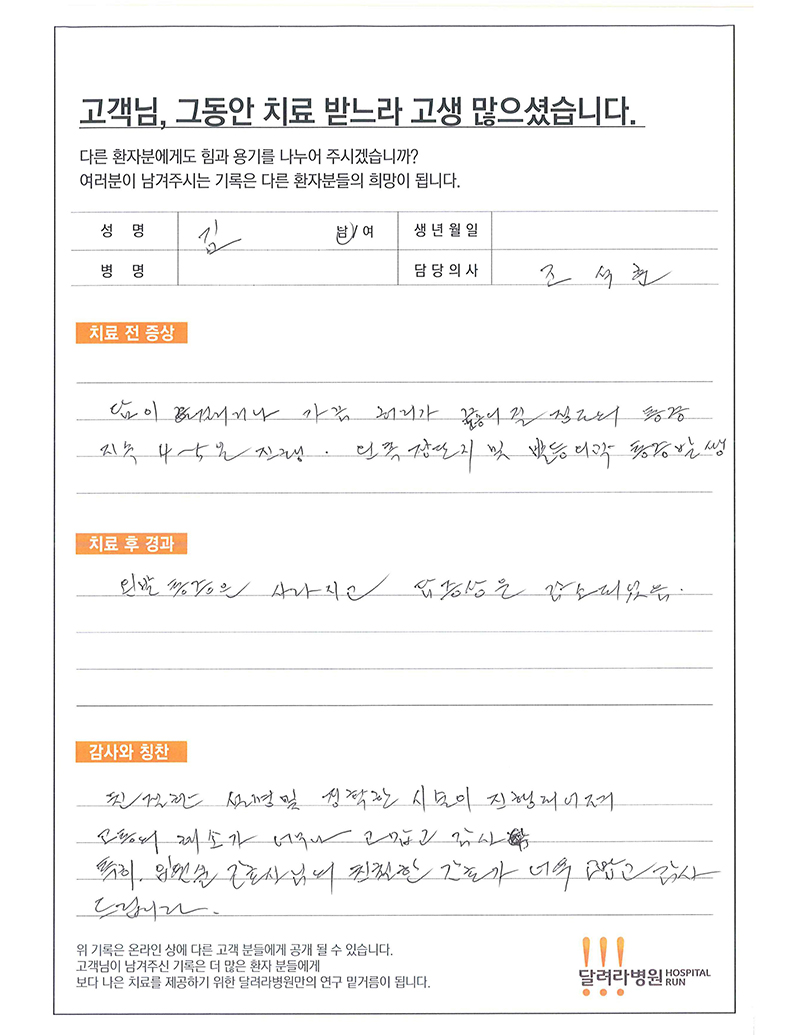 고객님, 그동안 치료 받느라 고생 많으셨습니다.
다른 환자분에게도 힘과 용기를 나누어 주시겠습니까?
여러분이 남겨주시는 기록은 다른 환자분들의 희망이 됩니다.
성 명 김 남/여 생년월일
병 명 담당의사 조석현
치료 전 증상
담이 가끔 허리가 정도의 통증
지속 4-5일 진행. 왼쪽 장단지 및 발등 통증발생
치료 후 경과
왼발 통증은 사라지고 담증상은 감소되었음.
감사와 칭찬
친절한 설명및 정확한 시술이 진행되어져
고통의 해소가 너무나 고맙고 감사
특히, 간호사님의 친절한 간호가 너무 고맙고 감사
드립니다.
위 기록은 온라인 상에 다른 고객 분들에게 공개 될 수 있습니다.
고객님이 남겨주신 기록은 더 많은 환자 분들에게
보다 나은 치료를 제공하기 위한 달려라병원만의 연구 밑거름이 됩니다.
!!! 달려라병원 HOSPITAL RUN